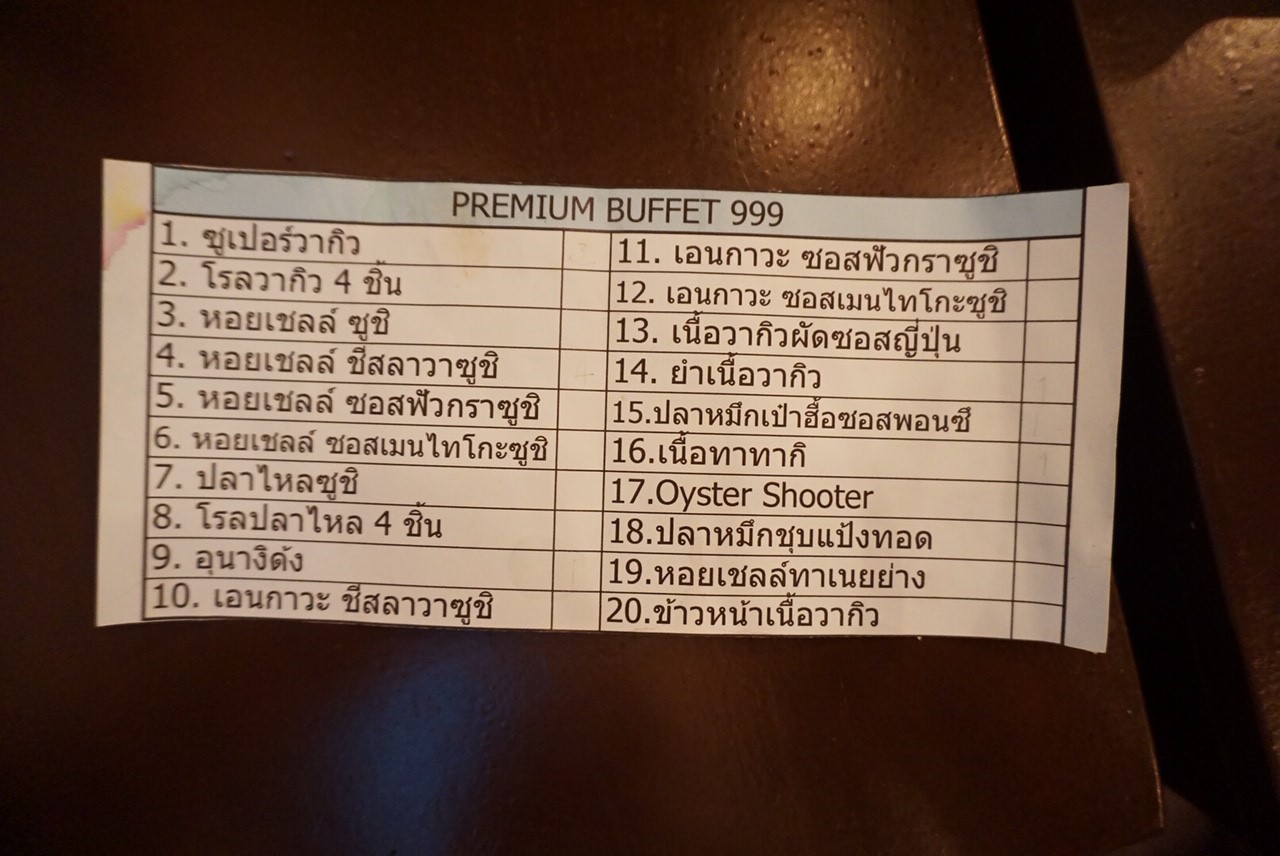 PREMIUM BUFFET 999
1. ซูเปอร์วากิว
2. โรลวากิว 4 ชิ้น
3. หอยเชลล์ ซูชิ
4. หอยเชลล์ ชีสลาวาซูชิ
5. หอยเชลล์ ซอสฟัวกราซูชิ
6. หอยเชลล์ ซอสเมนไทโกะซูชิ
7. ปลาไหลซูชิ
8. โรลปลาไหล 4 ชิ้น
9. อุนางิดัง
10. เอนกาวะ ชีสลาวาซูชิ
11. เอนกาวะ ซอสฟัวกราซูชิ
12. เอนกาวะ ซอสเมนไทโกะซูชิ
13. เนื้อวากิวผัดซอสญี่ปุ่น
14. ยำเนื้อวากิว
15.ปลาหมึกเป๋าฮื้อซอสพอนซึ
16.เนื้อทาทากิ
17.Oyster Shooter
18.ปลาหมึกชุบแป้งทอด
19.หอยเชลล์ทาเนยย่าง
20.ข้าวหน้าเนื้อวากิว